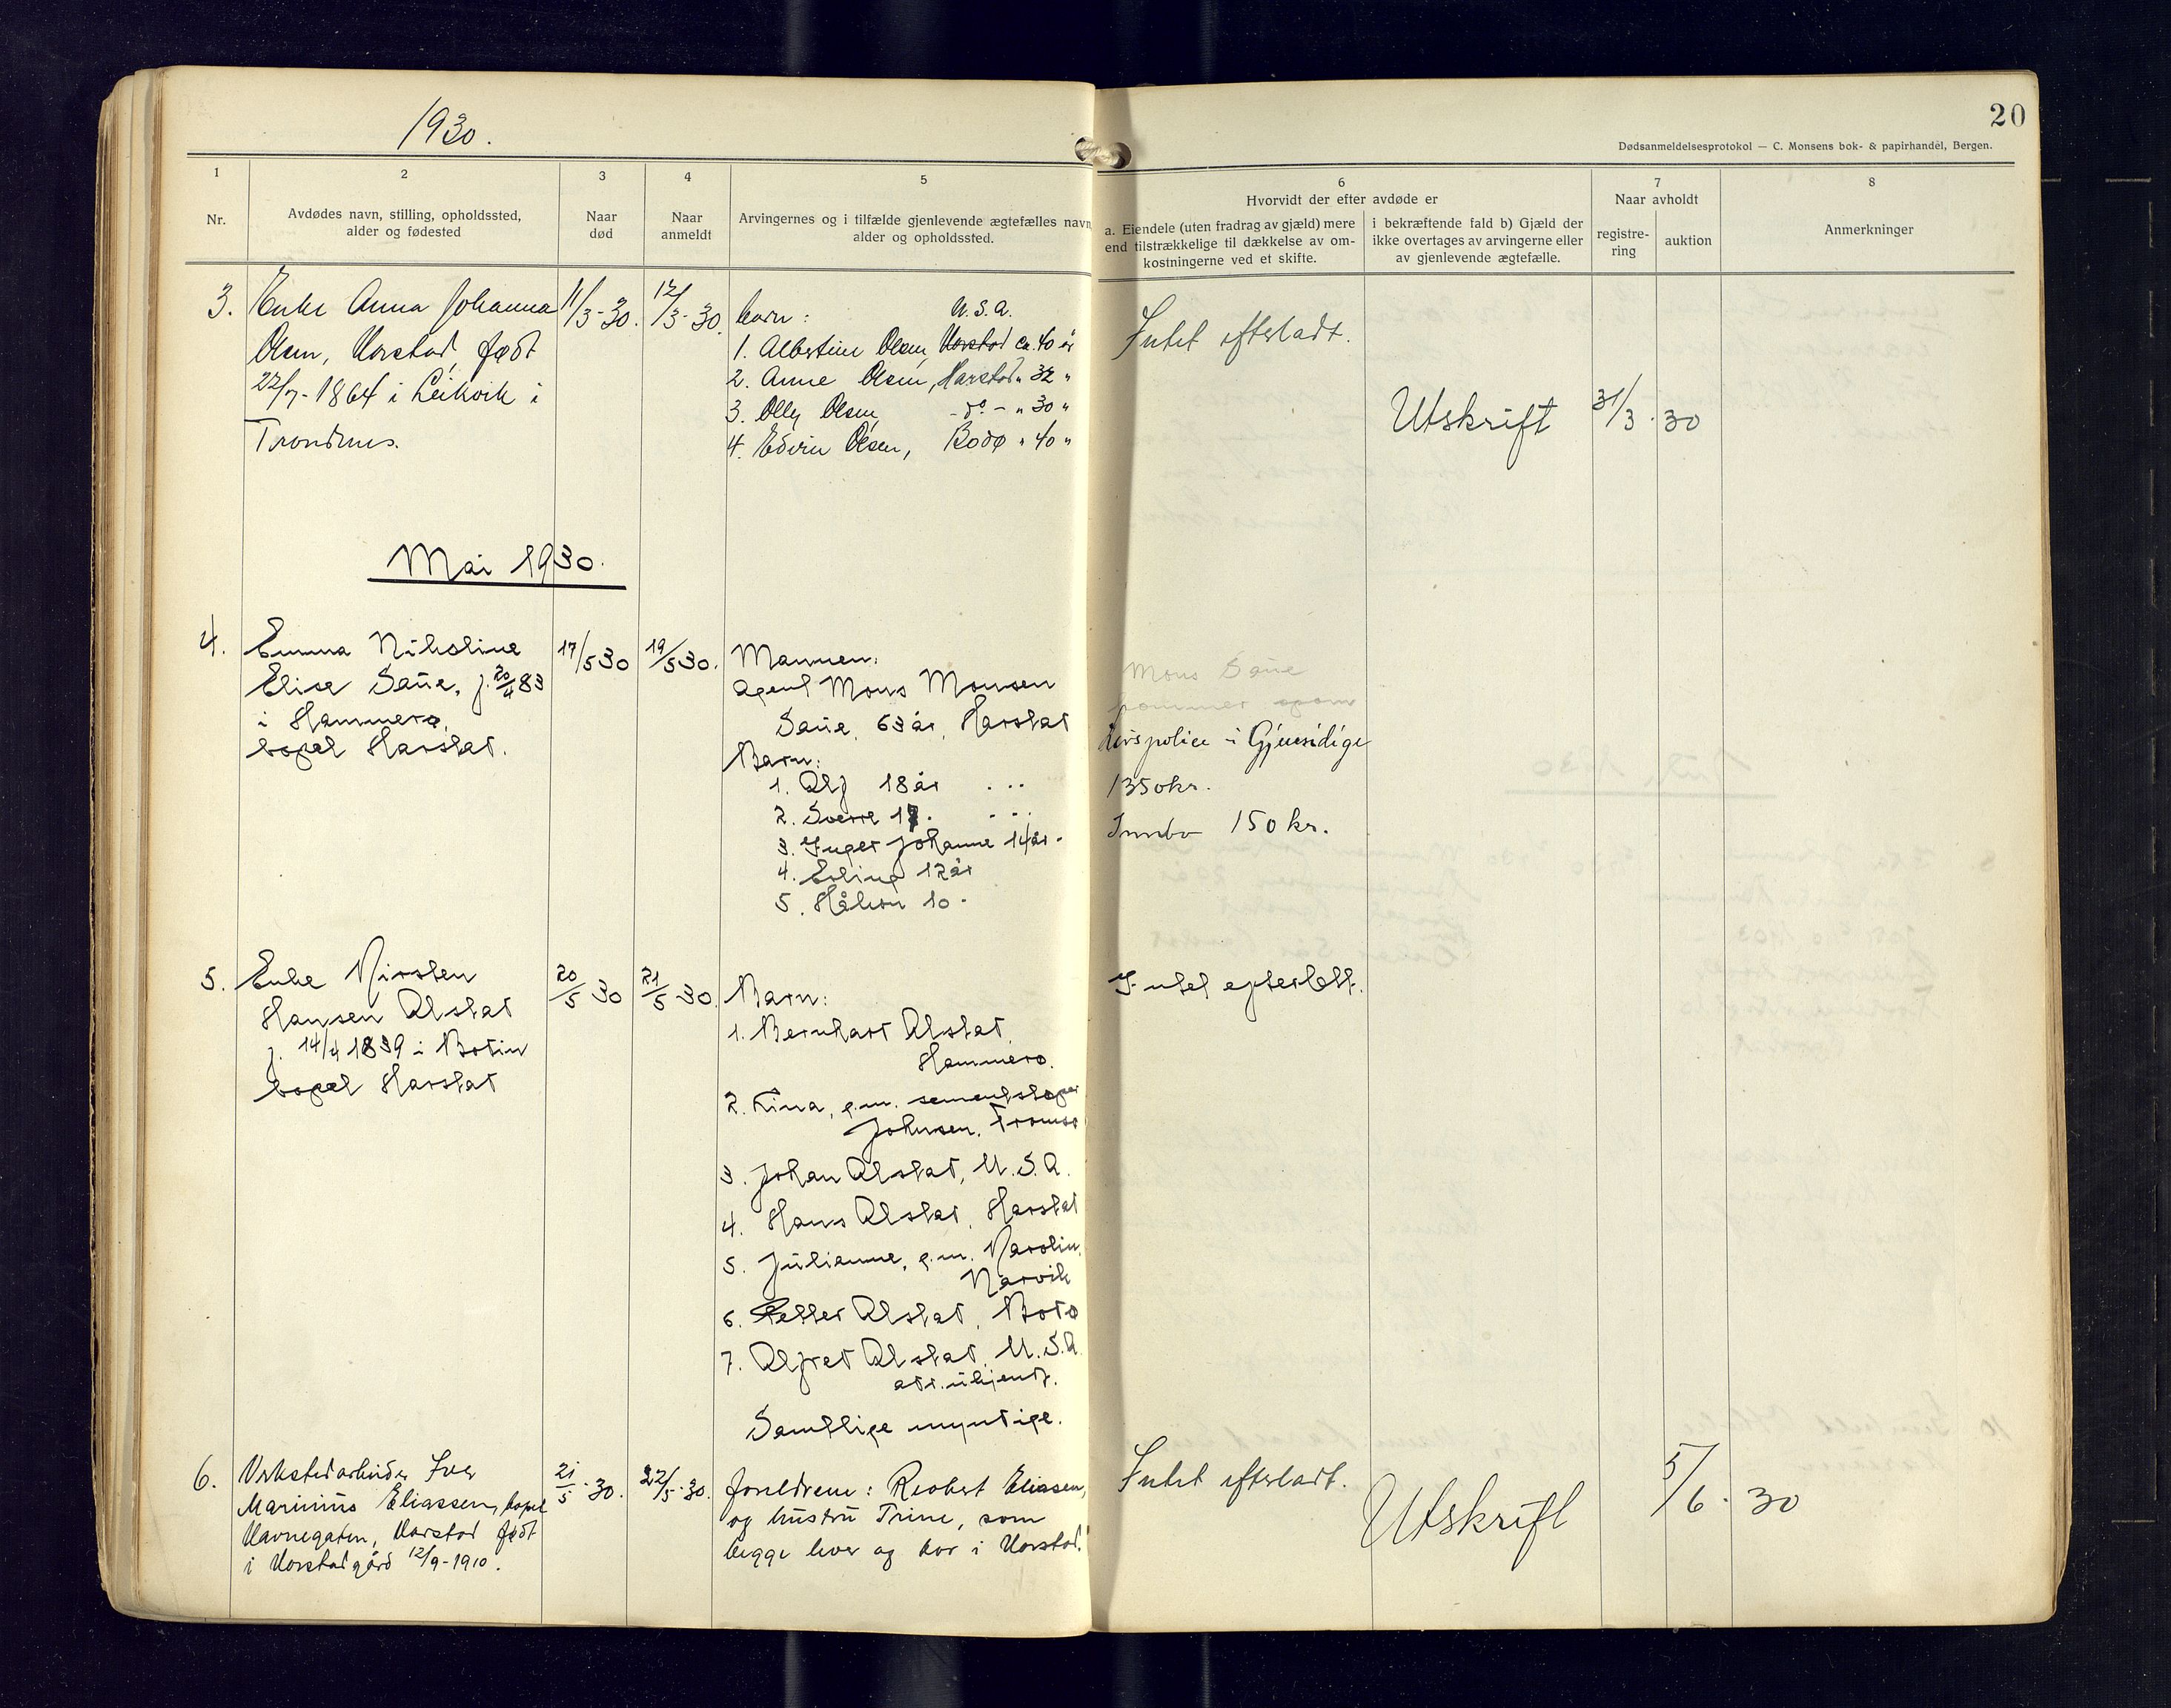 1930.
20
Dødsanmeldelsesprotokol — C. Monsens bok- & papirhandel, Bergen.
1
2
3
4
5
6
7
8
Nr.
Avdødes navn, stilling, opholdssted,
alder og fødested
Naar
død
Naar
anmeldt
Arvingernes og i tilfælde gjenlevende ægtefælles navn,
alder og opholdssted.
Hvorvidt der efter avdøde er
a. Eiendele (uten fradrag av gjæld) mere
end tilstrækkelige til dækkelse av om-
kostningerne ved et skifte.
i bekræftende fald b) Gjæld der
ikke overtages av arvingerne eller
av gjenlevende ægtefælle.
Naar avholdt
registre-
ring
auktion
Anmerkninger
3.
Enke Anna Johanna
Olsen, Harstad, født
22/7-1864 i Leikvik i
Trondenes.
11/3-30.
12/3-30
barn:
U.S.A.
1. Albertine Olsen, Harstad ca. 40 år
2. Anne Olsen, Harstad " 32 "
3. Olly Olsen, - do - " 30 "
4. Edvin Olsen, Bodø " 40 "
Intet efterladt.
Utskrift 31/3.30
Mai 1930.
4.
Emma Nikoline
Elise Saue, f. 20/4 83
i Hammerø,
bopel Harstad.
17/5 30
19/5 30.
Mannen:
agent Mons Monsen
Saue, 63 år, Harstad
Barn:
1. Alf 18 år
2. Sverre 17.
3. Inger Johanne 14 år -
4. Erling 12 år
5. Håkon 10 -
Mons Saue
kommer
Livspolice i Gjensidige
1350 kr.
Innbo 150 kr.
5.
Enke Kirsten
Hansen Alstad
f. 14/4 1839 i Bodin
bopel Harstad
20/5 30
21/5 30.
Barn:
1. Bernhard Alstad,
Hammerø.
2. Tina, g.m. sementstøper
Johnsen, Tromsø
3. Johan Alstad, U.S.A.
4. Hans Alstad, Harstad
5. Julianne, g.m. Karolin,
Narvik
6. Petter Alstad, Bodø
7. Alfred Alstad, U.S.A.
adr. ukjendt.
Samtlige myndige.
Intet efterlatt.
6.
Verkstedarbeider Ivar
Marinius Eliassen, bopel
Havnegaten, Harstad født
i Harstadgård 12/9-1910.
21/5-30.
22/5-30.
foreldrene: Robert Eliassen,
og hustru Trine, som
begge lever og bor i Harstad.
Intet efterladt.
Utskrift 5/6.30